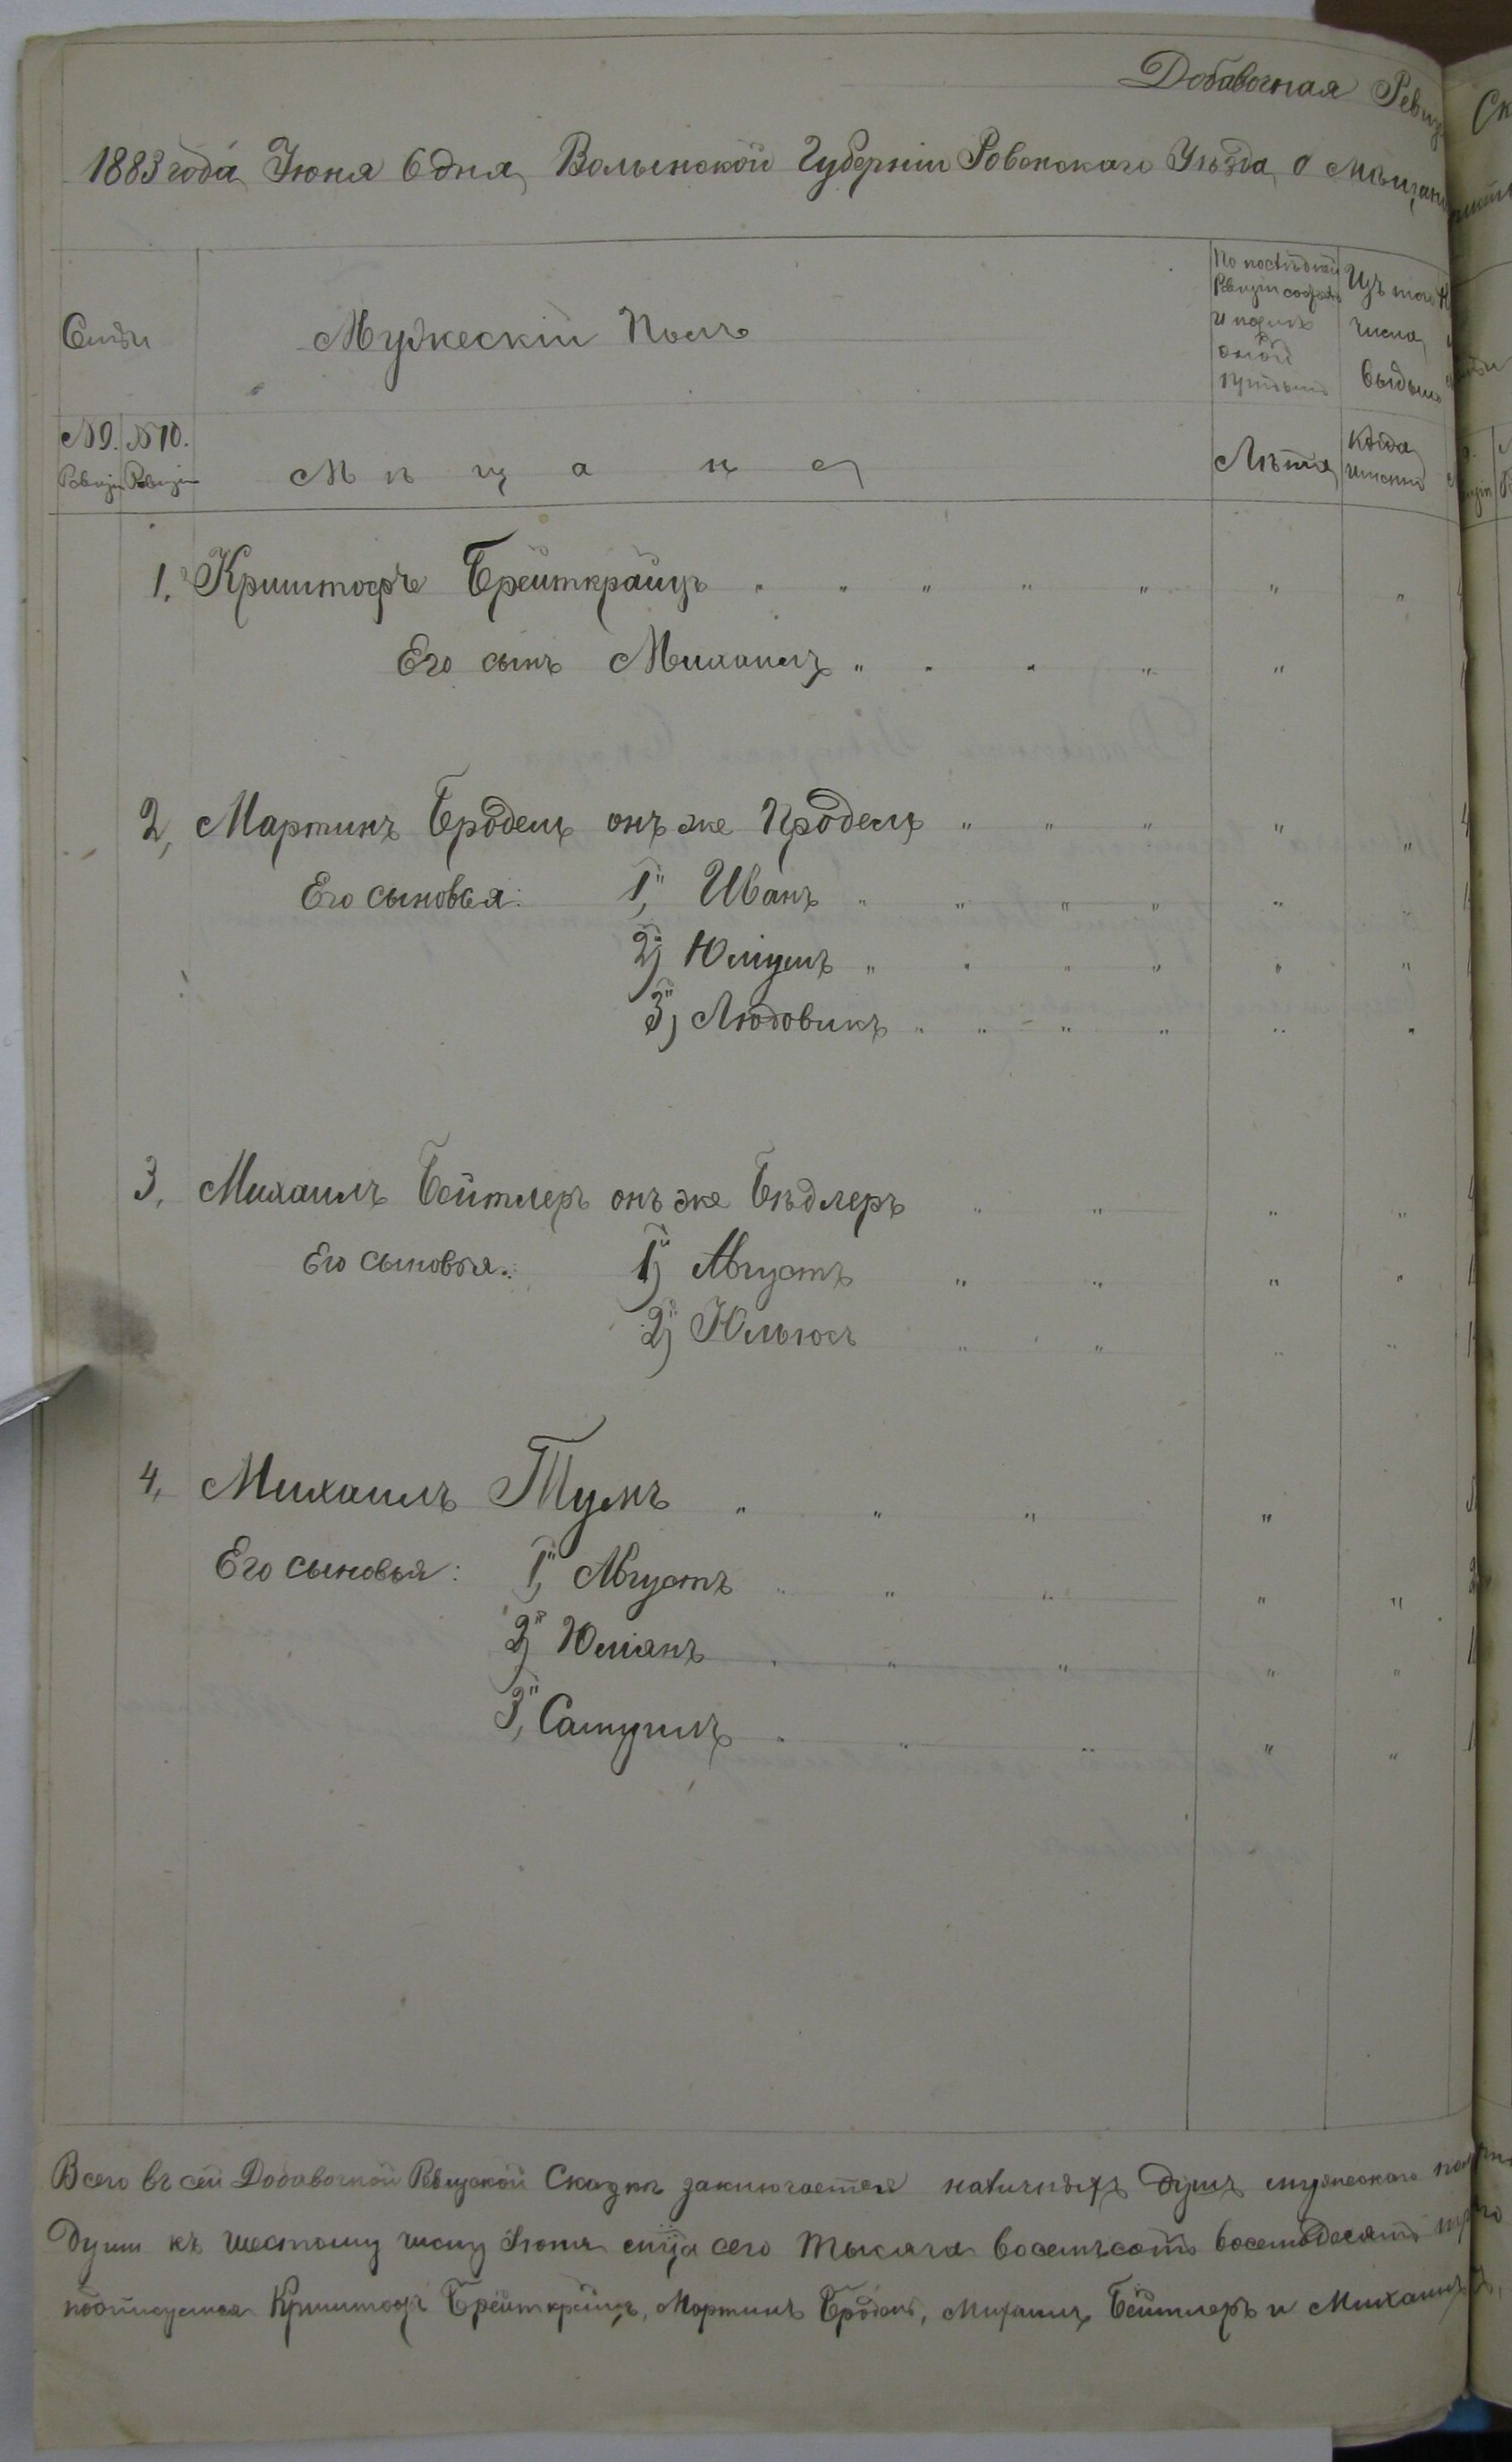 Добавочная Ревиз
1883 года Іюня 6 дня, Волынской Губерніи Ровенскаго Уѣзда, о мѣщан
Семьи
Мужескій Полъ
По послѣдней Ревизіи состояло и послѣ оной прибыло
Изъ того числа выбыло
№ 9. Ревизіи
№ 10. Ревизіи
Мѣщане
Лѣта
Когда именно
1. Криштофъ Брейткрайцъ " " " " " " "
Его сынъ Михаилъ " " " " "
2, Мартинъ Бродель онъ же Продель " " " " "
Его сыновья: 1, Иванъ " " " " " "
2, Юліушъ " " " " " "
3, Людовикъ " " " " " "
3, Михаилъ Бейтлеръ онъ же Бѣдлеръ " " " "
Его сыновья: 1, Августъ " " " "
2, Юльюсъ " " " "
4, Михаилъ Тумъ " " " "
Его сыновья: 1, Августъ " " " " "
2, Юліанъ " " " " "
3, Самуилъ " " " " "
Всего въ сей Добавочной Ревизской Сказкѣ заключается наличныхъ душъ мужескаго
Души къ шестому числу Іюня мца сего тысяча восемьсотъ восемьдесятъ
подписуемся Криштофъ Брейткрайцъ, Мартинъ Бродель, Михаилъ Бейтлеръ и Михаилъ